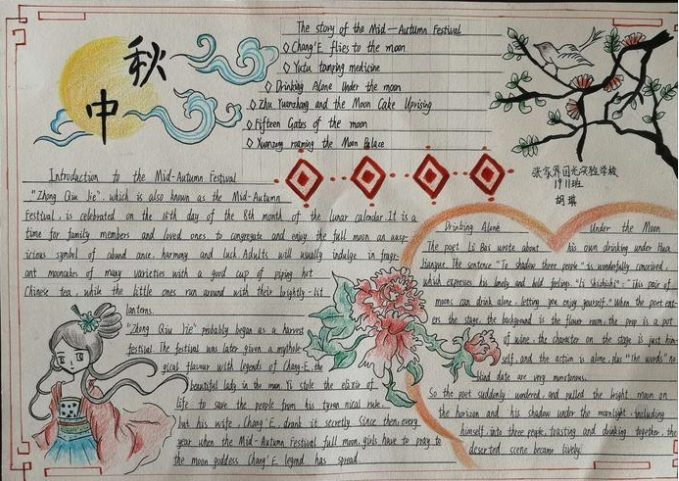 中
秋
The story of the Mid-Autumn Festival
◇ Chang'E flies to the moon
◇ Yutu tamping medicine
◇ Drinking Alone Under the moon
◇ Zhu Yuanzhang and the Moon Cake Uprising
◇ Fifteen Gates of the moon
◇ Xuanzong roaming the Moon Palace
1911班
胡琪
Introduction to the Mid-Autumn Festival
"Zhong Qiu Jie", which is also known as the Mid-Autumn
Festival, is celebrated on the 15th day of the 8th month of the lunar calendar. It is a
time for family members and loved ones to congregate and enjoy the full moon an ausp-
icious symbol of abund ance, harmony and luck. Adults will usually indulge in fragr-
ant mooncakes of many varieties with a good cup of piping hot
Chinese tea, while the little ones run around with their brightly-lit
lanterns.
"Zhong Qiu Jie" probably began as a harvest
festival. The festival was later given a mytholo
gical flavour with legends of Chang-E, the
beautiful lady in the moon. Yi stole the elixir of
life to save the people from his tyran nical rule,
but his wife, Chang'E drank it secretly. Since then, every
year when the Mid-Autumn Festival full moon, girls have to pray to
the moon goddess Chang'E legend has spread.
Drinking Alone Under the Moon
The poet Li Bai wrote about his own drinking under Hua
The sentence "To shadow three people" is wonderfully conceived,
which expresses his lonely and
moons can drink alone, letting you enjoy yourself." When the poet ent-
ers the stage, the background is the flower room, the prop is a pot
of wine, the character on the stage is just him-
self, and the action is alone, plus "The words" no
blind date are very monotonous.
So the poet suddenly wondered, and pulled the bright moon on
the horizon and his shadow under the moonlight, including
himself, into three people, toasting and drinking together, the
deserted scene became lively.